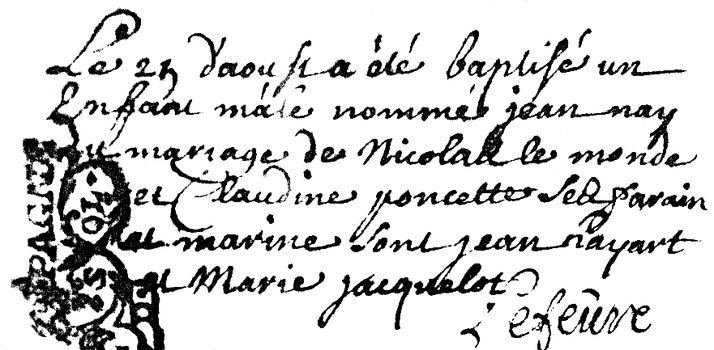 Le 25 d'aoust a été baptisé un
Enfant mâle nommé jean nay
du mariage de Nicolas le monde
et Claudine poncette ses parain
et marine sont jean
et Marie jacquelot
Lefeûvre